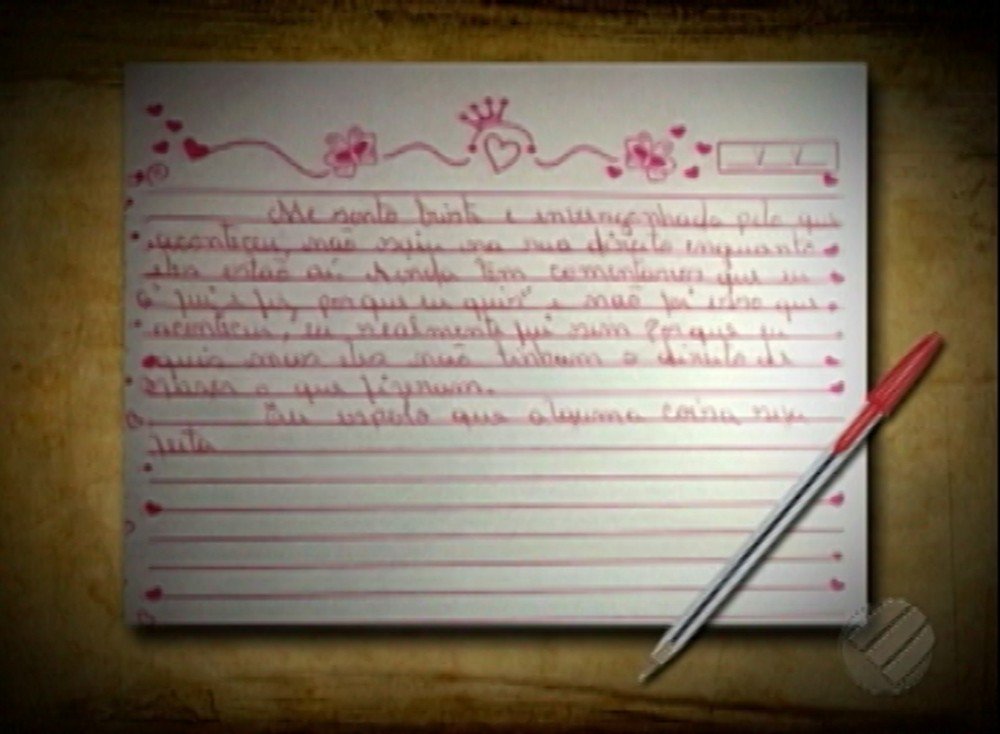 Me sento triste e envergonhada pelo que
aconteceu, não na rua direito enquanto
eles estão aí. Ainda têm comentários que eu
" fui e fiz porque eu quis" e não foi isso que
aconteceu, eu realmente fui sim porque eu
quis mas eles não tinham o direito de
fazer o que fizeram.
Eu espero que alguma coisa seja
feita